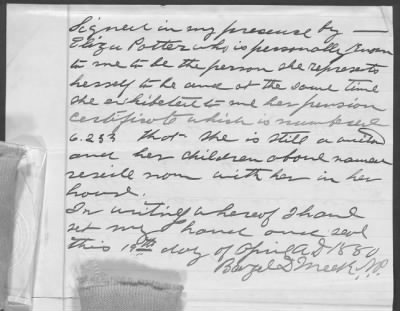 Signed in my presense by —
Eliza Potter who is personally known
to me to be the person she represets
herself to be and at the same time
she exhibeted to me her pension
certificate which is numbered
6.233 that she is still a widow
and her children above named
reside now with her in her
house.
In witness whereof I have
set my hand and seal
this 19th day of April A D 1880
Bazel D Meek J.P.